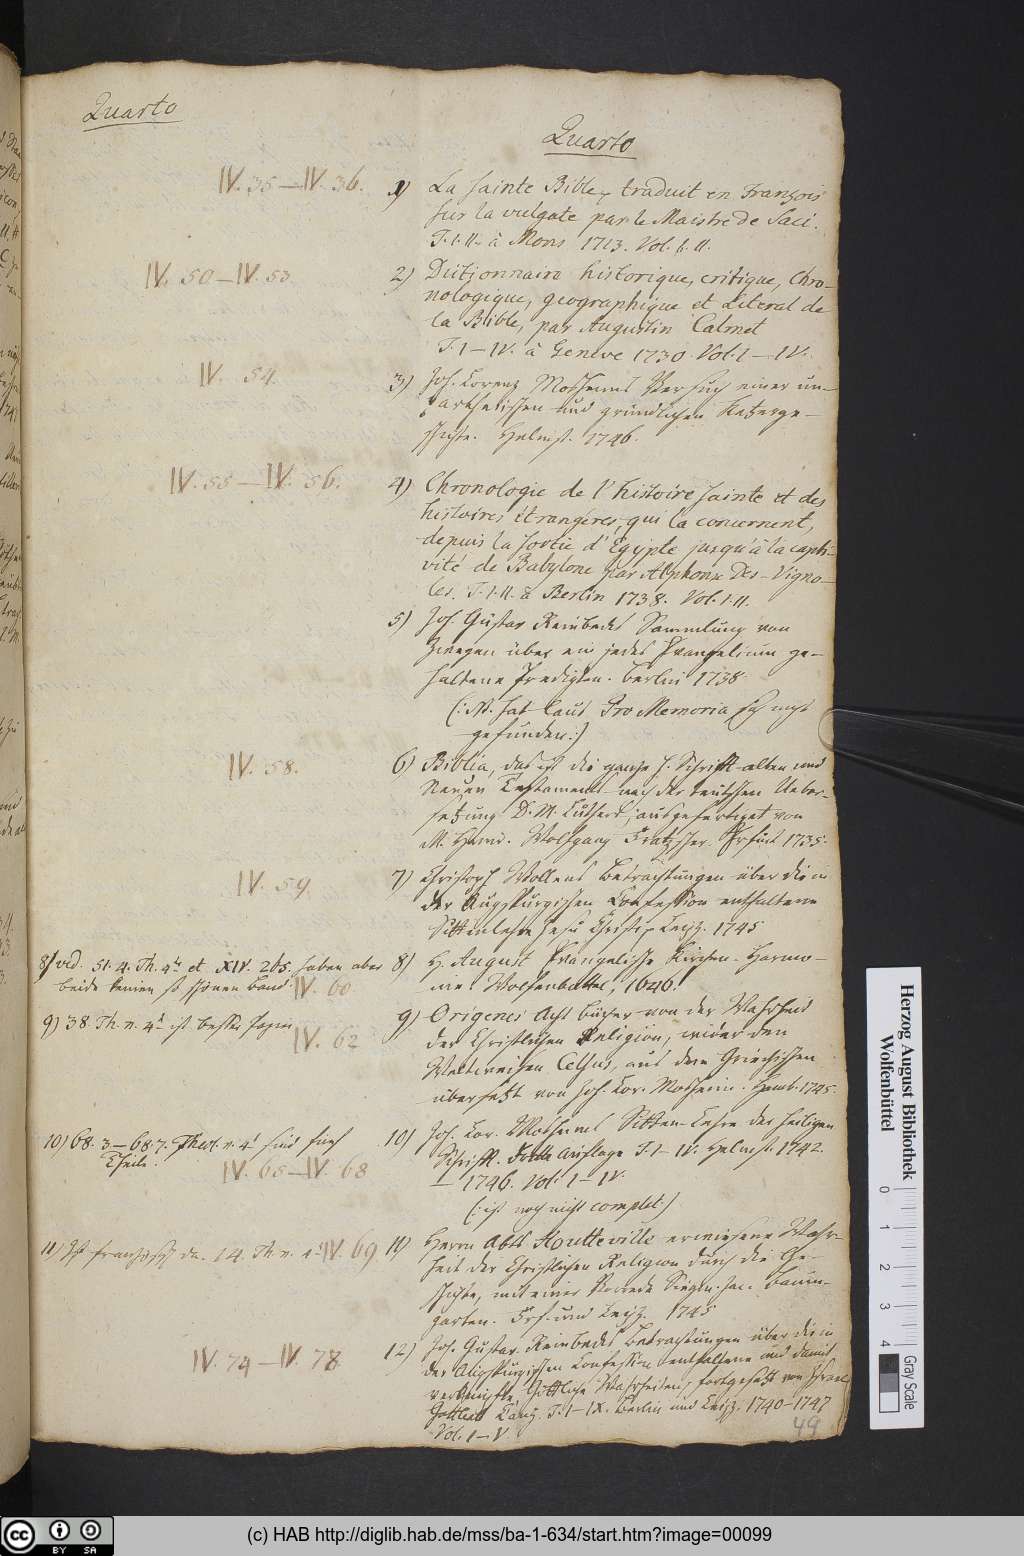 Quarto
Quarto
IV. 35 — IV. 36.
1) La Sainte Bible, traduit en François
sur la vulgate par le Maistre de Saci.
T. I. II. à Mons 1713. Vol. I. II.
IV. 50 — IV. 53.
2) Dictionnaire historique, critique, Chro-
nologique, geographique et Literal de
la Bible, par Augustin Calmet
T. I — IV. à Geneve 1730. Vol. I — IV.
IV. 54.
3) Joh. Lorenz Mosheims Versuch einer un-
partheiischen und gründlichen Ketzerge-
schichte. Helmst. 1746.
IV. 55 — IV. 56.
4) Chronologie de l'histoire sainte et des
histoires étrangeres, qui la concernent,
depuis la sortie d'Egypte jusqu'à la capti-
vité de Babylone par Alphonse Des-Vigno-
les. T. I. II. à Berlin 1738. Vol. I. II.
5) Joh. Gustav Reinbecks Sammlung von
zweyen über ein jedes Evangelium ge-
haltene Predigten. Berlin 1738
(: N. hat laut Pro Memoria sich nicht
gefunden :)
IV. 58.
6) Biblia, das ist die ganze H. Schrifft alten und
Neuen Testaments nach der teutschen Ueber-
setzung D. M. Luthers, ausgefertiget von
M. Wolfgang Erfurt 1735.
IV. 59.
7) Christoph Wollens Betrachtungen über die in
der Augspurgischen Confession enthaltene
Sittenlehre Jesu Christi, Leipz. 1745
8) vid. 51. 4. Th. 4to et XIV. 265. haben aber
beide keinen so schönen Band.
IV. 60
8) H. August Evangelische Kirchen-Harmo-
nie. Wolfenbüttel, 1646.
9) 38. Th. n. 4to ist besser
IV. 62
9) Origenes Acht Bücher von der Wahrheit
der Christlichen Religion, wider den
Weltweisen Celsus, aus dem Griechischen
übersetzt von Joh. Lor. Mosheim. Hamb. 1745.
10) 68. 3 — 68. 7. Theol. n. 4to sind fünf
Theile.
IV. 65 — IV. 68
10) Joh. Lor. Mosheims Sitten-Lehre der heiligen
Schrifft. Auflage T. I — IV. Helmst. 1742.
— 1746. Vol. I — IV.
(: ist noch nicht complet)
11) Ist französisch da. 14. Th. n. 4to
IV. 69.
11) Herrn Abts Houtteville erwiesene Wahr-
heit der Christlichen Religion durch die Ge-
schichte, mit einer Vorrede Siegm. Jac. Baum-
garten. Frf. und Leipz. 1745
IV. 74 — IV. 78
12) Joh. Gustav Reinbecks Betrachtungen über die in
der Augspurgischen Confession enthaltene und damit
verknüpfte Göttliche Wahrheiten, fortgesetzt von Israel
Gottlieb Canz. T. I — IX. Berlin und Leipz. 1740–1747
Vol. I — V.
49
Herzog August Bibliothek
Wolfenbüttel
0 1 2 3 4
Gray Scale
cc BY SA
(c) HAB http://diglib.hab.de/mss/ba-1-634/start.htm?image=00099